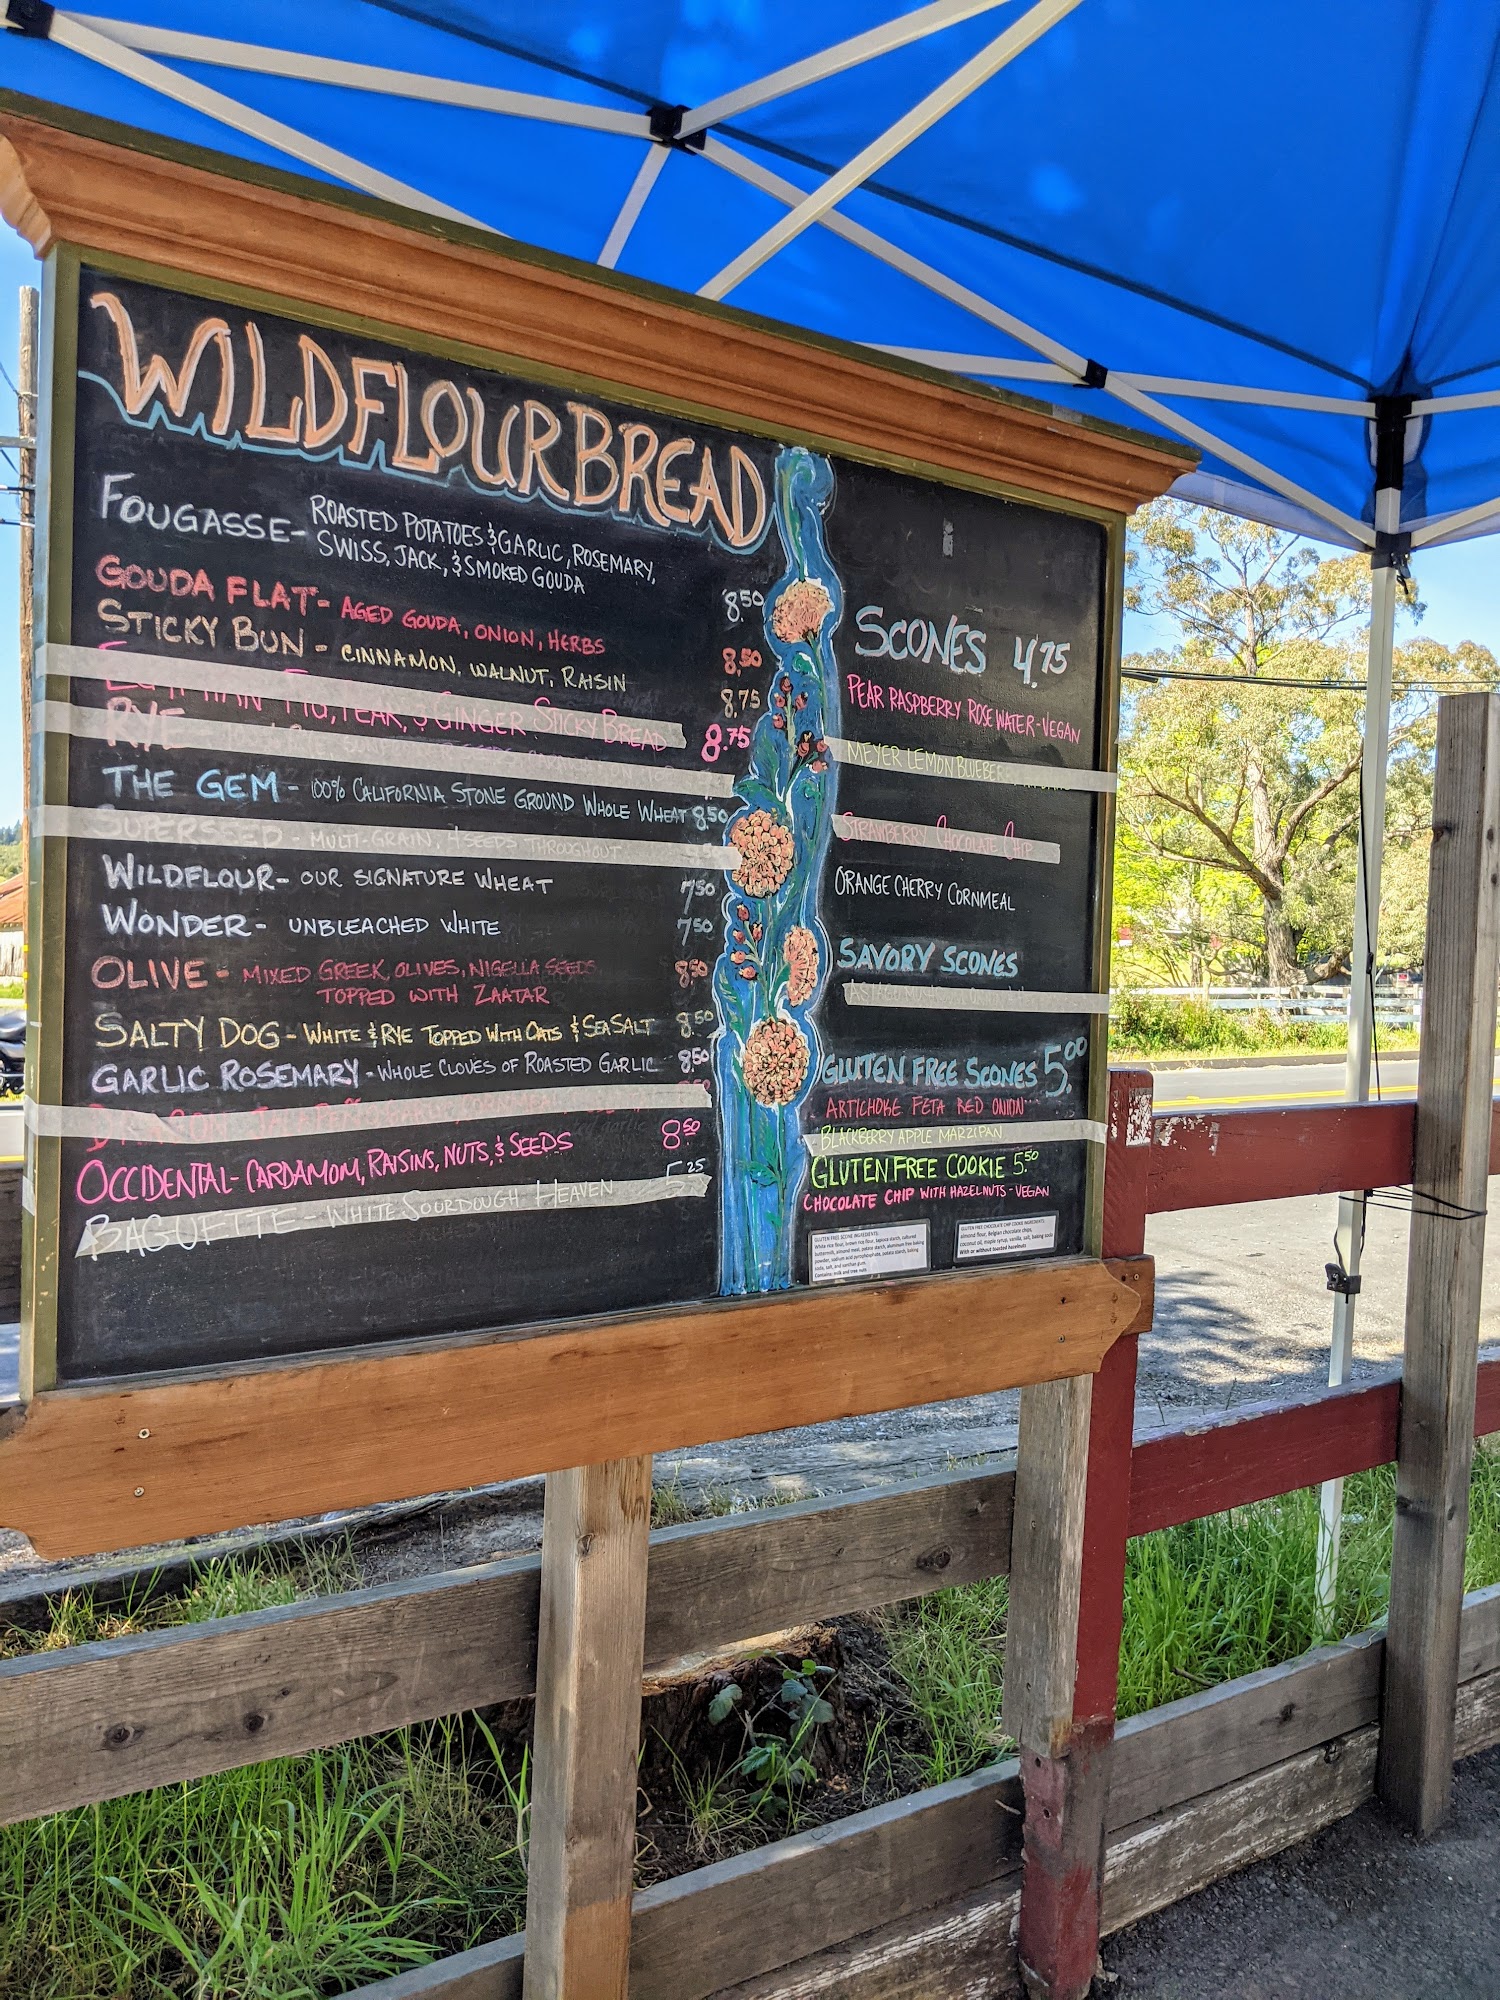 WILDFLOUR BREAD
FOUGASSE - ROASTED POTATOES & GARLIC, ROSEMARY,
SWISS, JACK, & SMOKED GOUDA 8.50
GOUDA FLAT - AGED GOUDA, ONION, HERBS 8.50
STICKY BUN - CINNAMON, WALNUT, RAISIN 8.75
FIG, PEAR, & GINGER STICKY BREAD 8.75
RYE
THE GEM - 100% CALIFORNIA STONE GROUND WHOLE WHEAT 8.50
SUPERSEED - MULTI-GRAIN, 4 SEEDS THROUGHOUT
WILDFLOUR - OUR SIGNATURE WHEAT 7.50
WONDER - UNBLEACHED WHITE 7.50
OLIVE - MIXED GREEK OLIVES, NIGELLA SEEDS 8.50
TOPPED WITH ZAATAR
SALTY DOG - WHITE & RYE TOPPED WITH OATS & SEA SALT 8.50
GARLIC ROSEMARY - WHOLE CLOVES OF ROASTED GARLIC 8.50
OCCIDENTAL - CARDAMOM, RAISINS, NUTS, & SEEDS 8.50
BAGUETTE - WHITE SOURDOUGH HEAVEN 5.25
SCONES 4.75
PEAR RASPBERRY ROSE WATER - VEGAN
MEYER LEMON
STRAWBERRY CHOCOLATE CHIP
ORANGE CHERRY CORNMEAL
SAVORY SCONES
GLUTEN FREE SCONES 5.00
ARTICHOKE FETA RED ONION
BLACKBERRY APPLE MARZIPAN
GLUTEN FREE COOKIE 5.50
CHOCOLATE CHIP WITH HAZELNUTS - VEGAN
GLUTEN FREE SCONE INGREDIENTS:
White rice flour, brown rice flour, tapioca starch, cultured
buttermilk, almond meal, potato starch, aluminum free baking
powder, sodium acid pyrophosphate, potato starch, baking
soda, salt, and xanthan gum
Contains: milk and tree nuts
GLUTEN FREE CHOCOLATE CHIP COOKIE INGREDIENTS:
almond flour, Belgian chocolate chips,
coconut oil, maple syrup, vanilla, salt, baking soda
With or without toasted hazelnuts